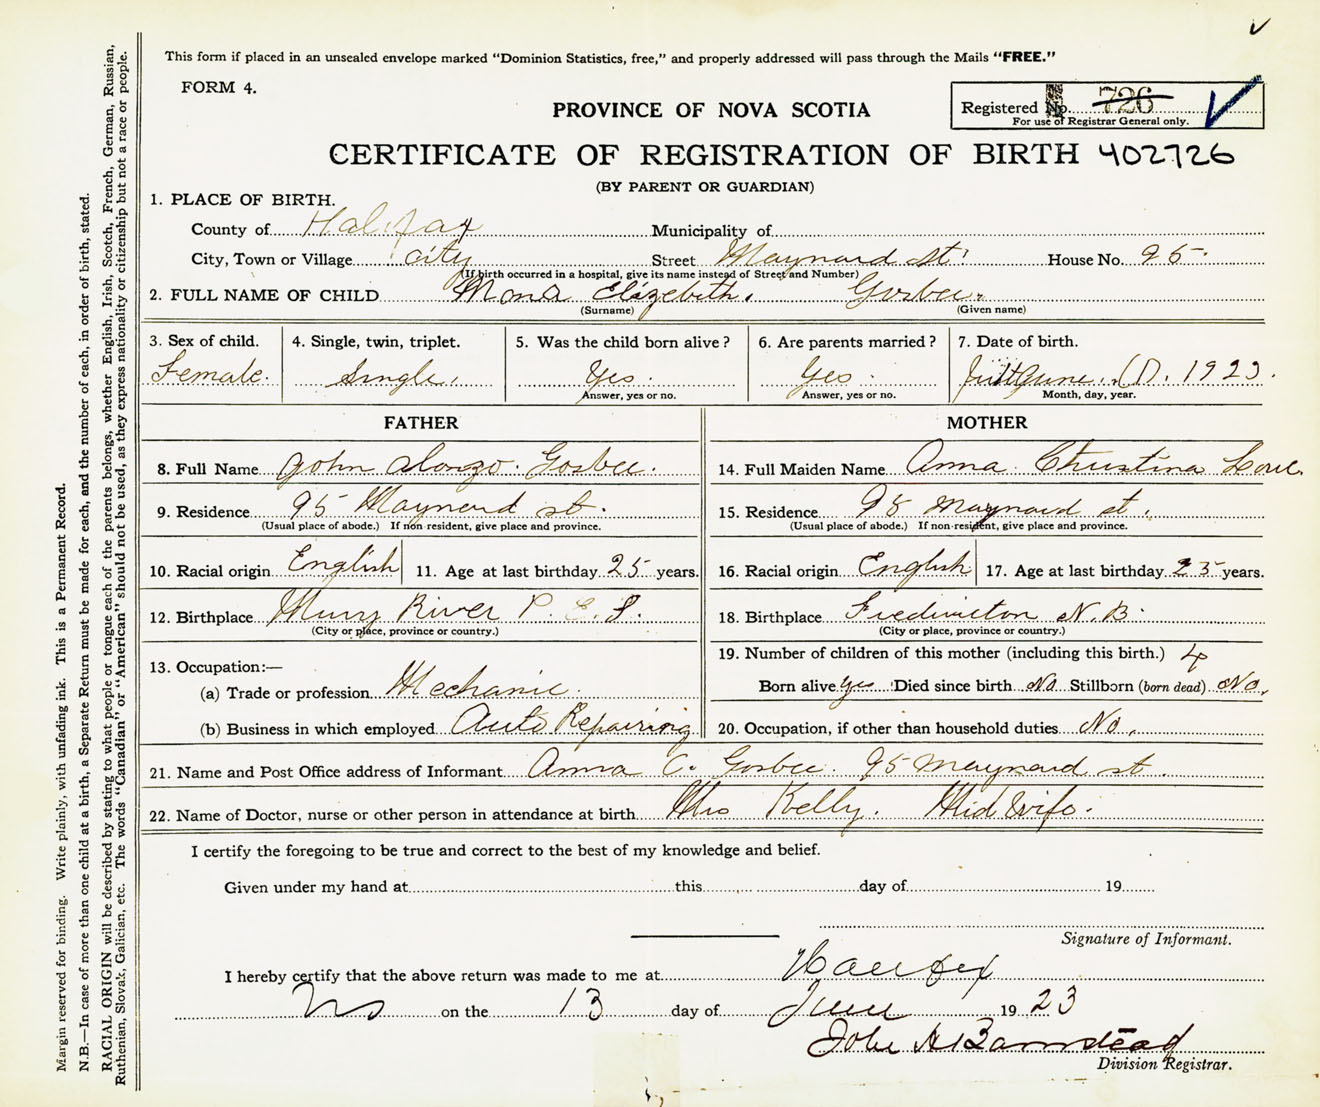 This form if placed in an unsealed envelope marked “Dominion Statistics, free,” and properly addressed will pass through the Mails “FREE.”
FORM 4.
Registered No. 726
For use of Registrar General only.
PROVINCE OF NOVA SCOTIA
CERTIFICATE OF REGISTRATION OF BIRTH 402726
(BY PARENT OR GUARDIAN)
1. PLACE OF BIRTH.
County of Halifax Municipality of
City, Town or Village city Street Maynard St. House No. 95
(If birth occurred in a hospital, give its name instead of Street and Number)
2. FULL NAME OF CHILD Mona Elizebeth. Gosbee.
(Surname) (Given name)
3. Sex of child. 4. Single, twin, triplet. 5. Was the child born alive? 6. Are parents married? 7. Date of birth.
Female. Single. Yes. Yes. June. 1923.
Answer, yes or no. Answer, yes or no. Month, day, year.
FATHER MOTHER
8. Full Name John Alonzo. Gosbee. 14. Full Maiden Name Anna Christina
9. Residence 95 Maynard st. 15. Residence 95 Maynard st.
(Usual place of abode.) If non-resident, give place and province. (Usual place of abode.) If non-resident, give place and province.
10. Racial origin English 11. Age at last birthday 25 years. 16. Racial origin English 17. Age at last birthday 25 years.
12. Birthplace Murry River P. E. I. 18. Birthplace Fredericton N.B.
(City or place, province or country.) (City or place, province or country.)
13. Occupation:— 19. Number of children of this mother (including this birth.) 4
(a) Trade or profession Mechanic. Born alive yes Died since birth No Stillborn (born dead) No.
(b) Business in which employed Auto Repairing 20. Occupation, if other than household duties No.
21. Name and Post Office address of Informant Anna C. Gosbee. 95 Maynard st.
22. Name of Doctor, nurse or other person in attendance at birth Mrs Kelly. Midwife.
I certify the foregoing to be true and correct to the best of my knowledge and belief.
Given under my hand at this day of 19
Signature of Informant.
I hereby certify that the above return was made to me at Halifax
NS on the 13 day of June 1923
John A Barnstead
Division Registrar.
Margin reserved for binding. Write plainly, with unfading ink. This is a Permanent Record.
N.B.—In case of more than one child at a birth, a Separate Return must be made for each, and the number of each, in order of birth, stated.
RACIAL ORIGIN will be described by stating to what people or tongue each of the parents belongs, whether English, Irish, Scotch, French, German, Russian,
Ruthenian, Slovak, Galician, etc. The words “Canadian” or “American” should not be used, as they express nationality or citizenship but not a race or people.